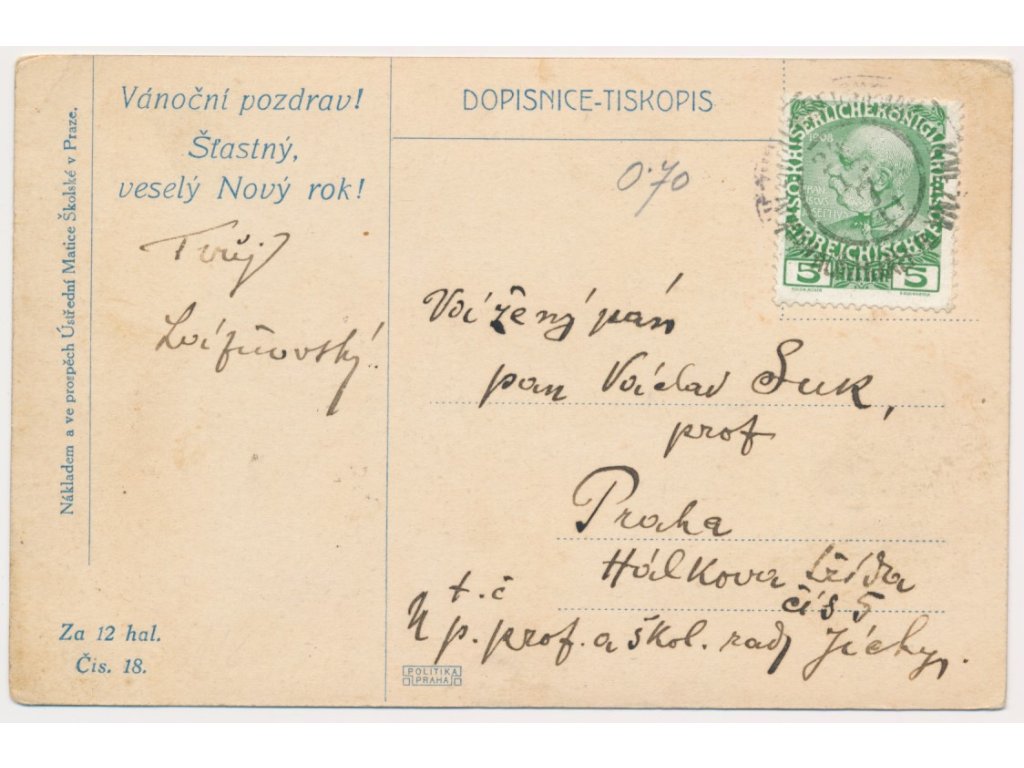 Nákladem a ve prospěch Ústřední Matice Školské v Praze.
Vánoční pozdrav!
Šťastný,
veselý Nový rok!
Tvůj
Za 12 hal.
Čís. 18.
DOPISNICE-TISKOPIS
0·70
1908
5 5
Vážený pán
pan Václav Suk,
prof
Praha
Hálkova třída
čís 5
t. č
U p. prof. a škol. rady Jíchy,
POLITIKA
PRAHA